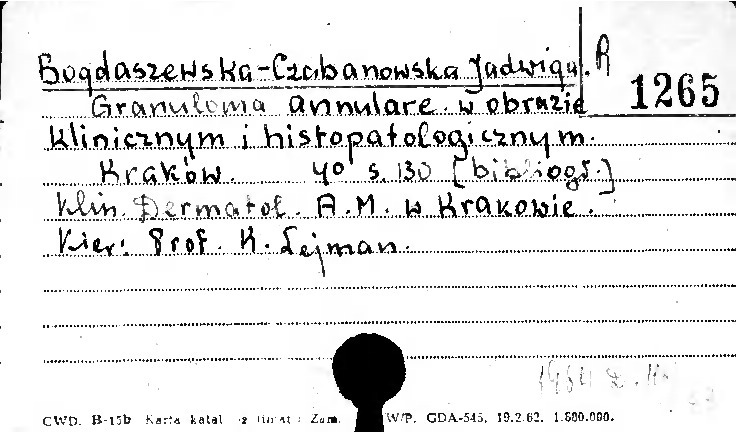 Bogdaszewska-Czabanowska Jadwiga. R 1265
Granuloma annulare w obrazie
klinicznym i histopatologicznym.
Kraków. 4° s. 130 [bibliogr.]
Klin. Dermatol. A.M. w Krakowie.
Kier: Prof. K. Lejman.
CWD. B-15b Karta katal Zam. W/P. GDA-545. 19.2.62. 1.800.000.